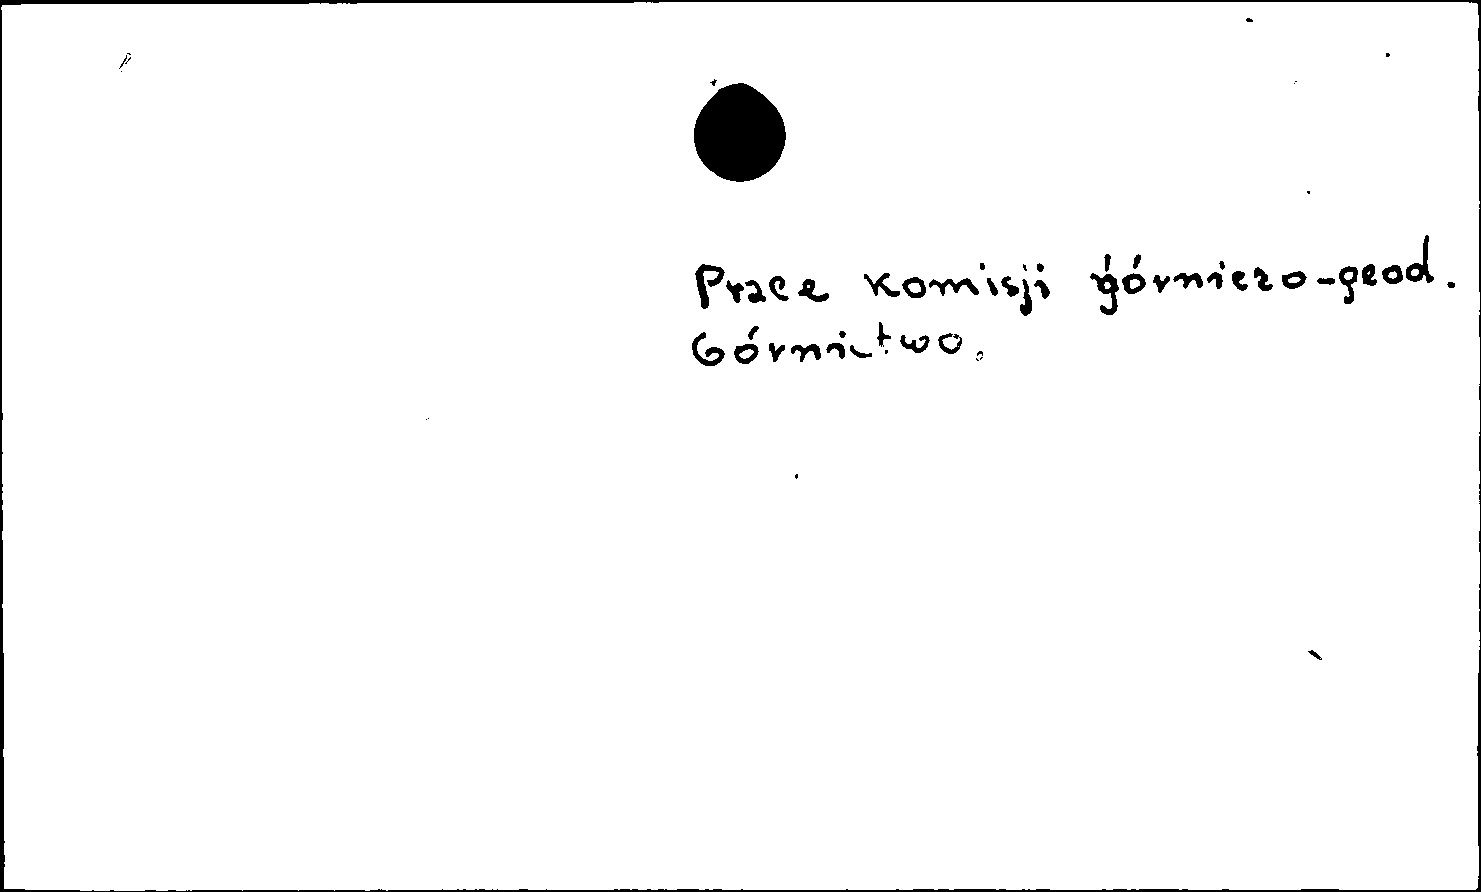 Prace komisji górniczo-geod.
Górnictwo.